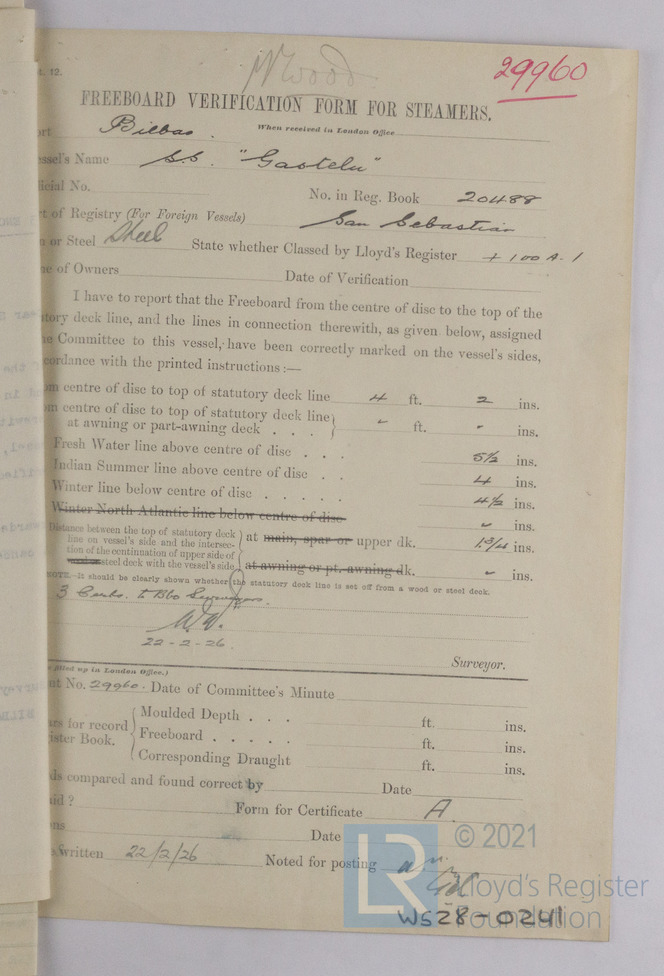 t. 12.
Wood
29960
FREEBOARD VERIFICATION FORM FOR STEAMERS.
ort Bilbao. When received in London Office
essel's Name S.S. "Gastelu"
ficial No.
No. in Reg. Book 20488
rt of Registry (For Foreign Vessels) San Sebastian
n or Steel Steel State whether Classed by Lloyd's Register + 100 A. 1
e of Owners Date of Verification
I have to report that the Freeboard from the centre of disc to top of the
tory deck line, and the lines in connection therewith, as given below, assigned
e Committee to this vessel, have been correctly marked on the vessel's sides,
cordance with the printed instructions :—
om centre of disc to top of statutory deck line 4 ft. 2 ins.
om centre of disc to top of statutory deck line
at awning or part-awning deck . . . " ft. " ins.
Fresh Water line above centre of disc . . . 5½ ins.
Indian Summer line above centre of disc . . 4 ins.
Winter line below centre of disc . . . . . 4½ ins.
Winter North Atlantic line below centre of disc " ins.
Distance between the top of statutory deck
line on vessel's side and the intersec-
tion of the continuation of upper side of
steel deck with the vessel's side
at main, spar or upper dk. 1¾ ins.
at awning or pt. awning dk. " ins.
NOTE.—It should be clearly shown whether the statutory deck line is set off from a wood or steel deck.
3 Certs. to Bbo Surveyors.
22-2-26.
Surveyor.
e filled up in London Office.)
nt No. 29960. Date of Committee's Minute
ars for record
ister Book.
Moulded Depth . . . ft. ins.
Freeboard . . . . . ft. ins.
Corresponding Draught ft. ins.
ds compared and found correct by Date
aid ? Form for Certificate A.
ons Date
written 22/2/26 Noted for posting
LR © 2021
Lloyd's Register
Foundation
WS28-0241